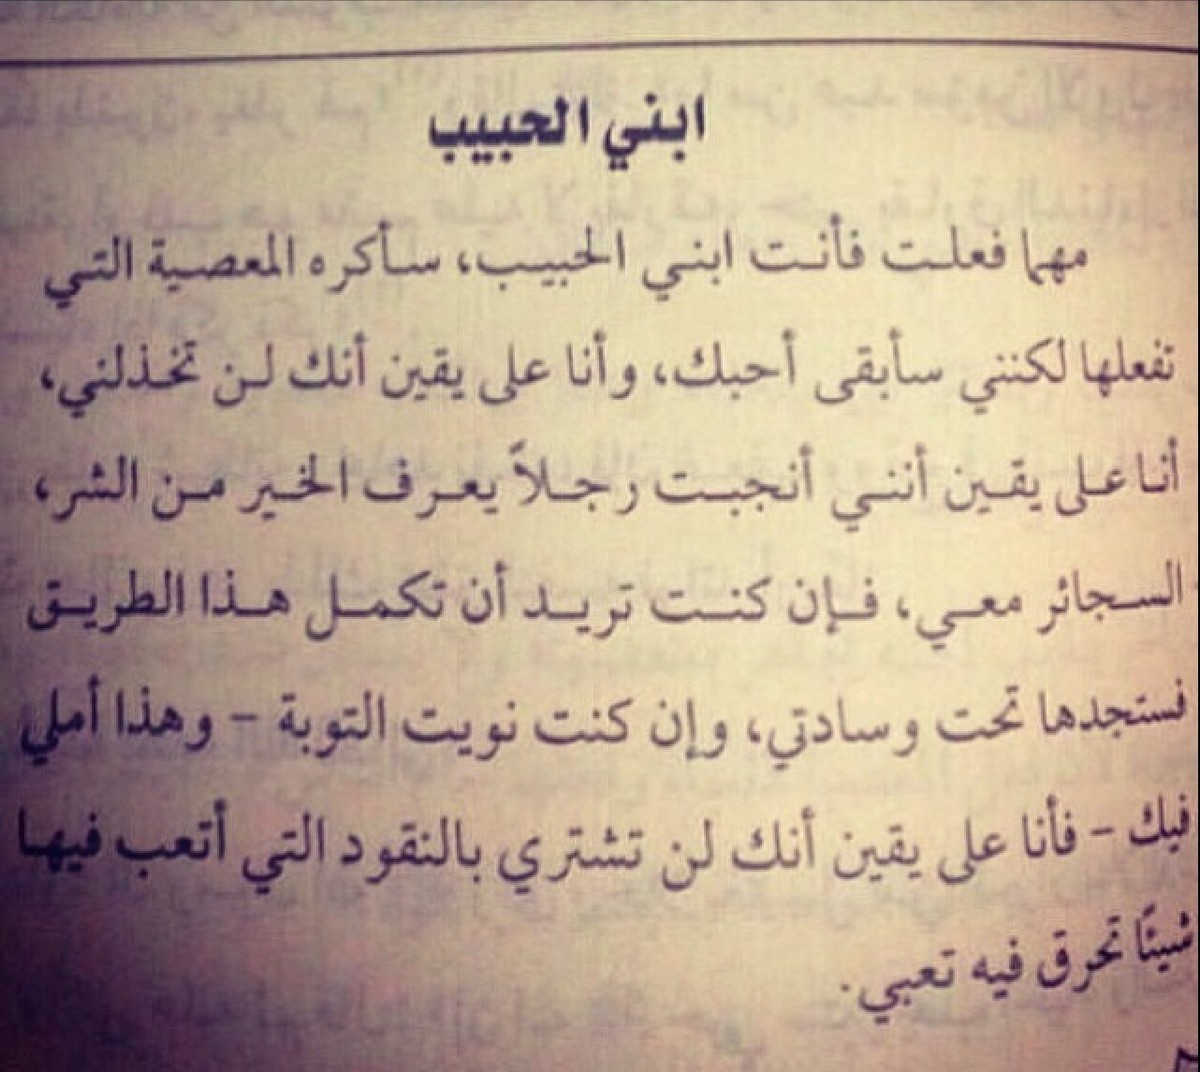 ابني الحبيب
مهما فعلت فأنت ابني الحبيب، سأكره المعصية التي
تفعلها لكنني سأبقى أحبك، وأنا على يقين أنك لن تخذلني،
أنا على يقين أنني أنجبت رجلاً يعرف الخير من الشر،
السجائر معي، فإن كنت تريد أن تكمل هذا الطريق
فستجدها تحت وسادتي، وإن كنت نويت التوبة - وهذا أملي
فيك - فأنا على يقين أنك لن تشتري بالنقود التي أتعب فيها
شيئًا تحرق فيه تعبي.